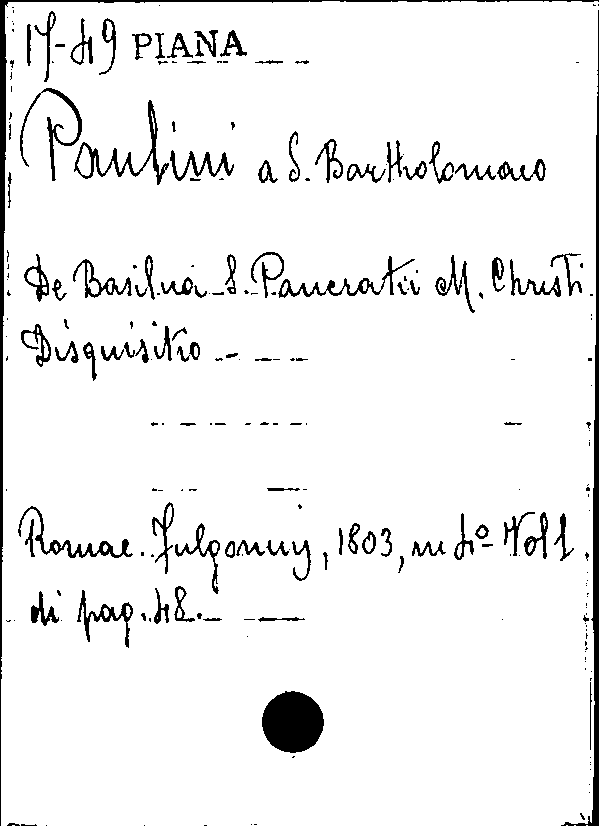 17-49 PIANA
Paulini a S. Bartholomaeo
De Basilica S. Pancratii M. Christi
Disquisitio
Romae. Fulgonius, 1803, in 4º Vol 1.
di pag. 48.